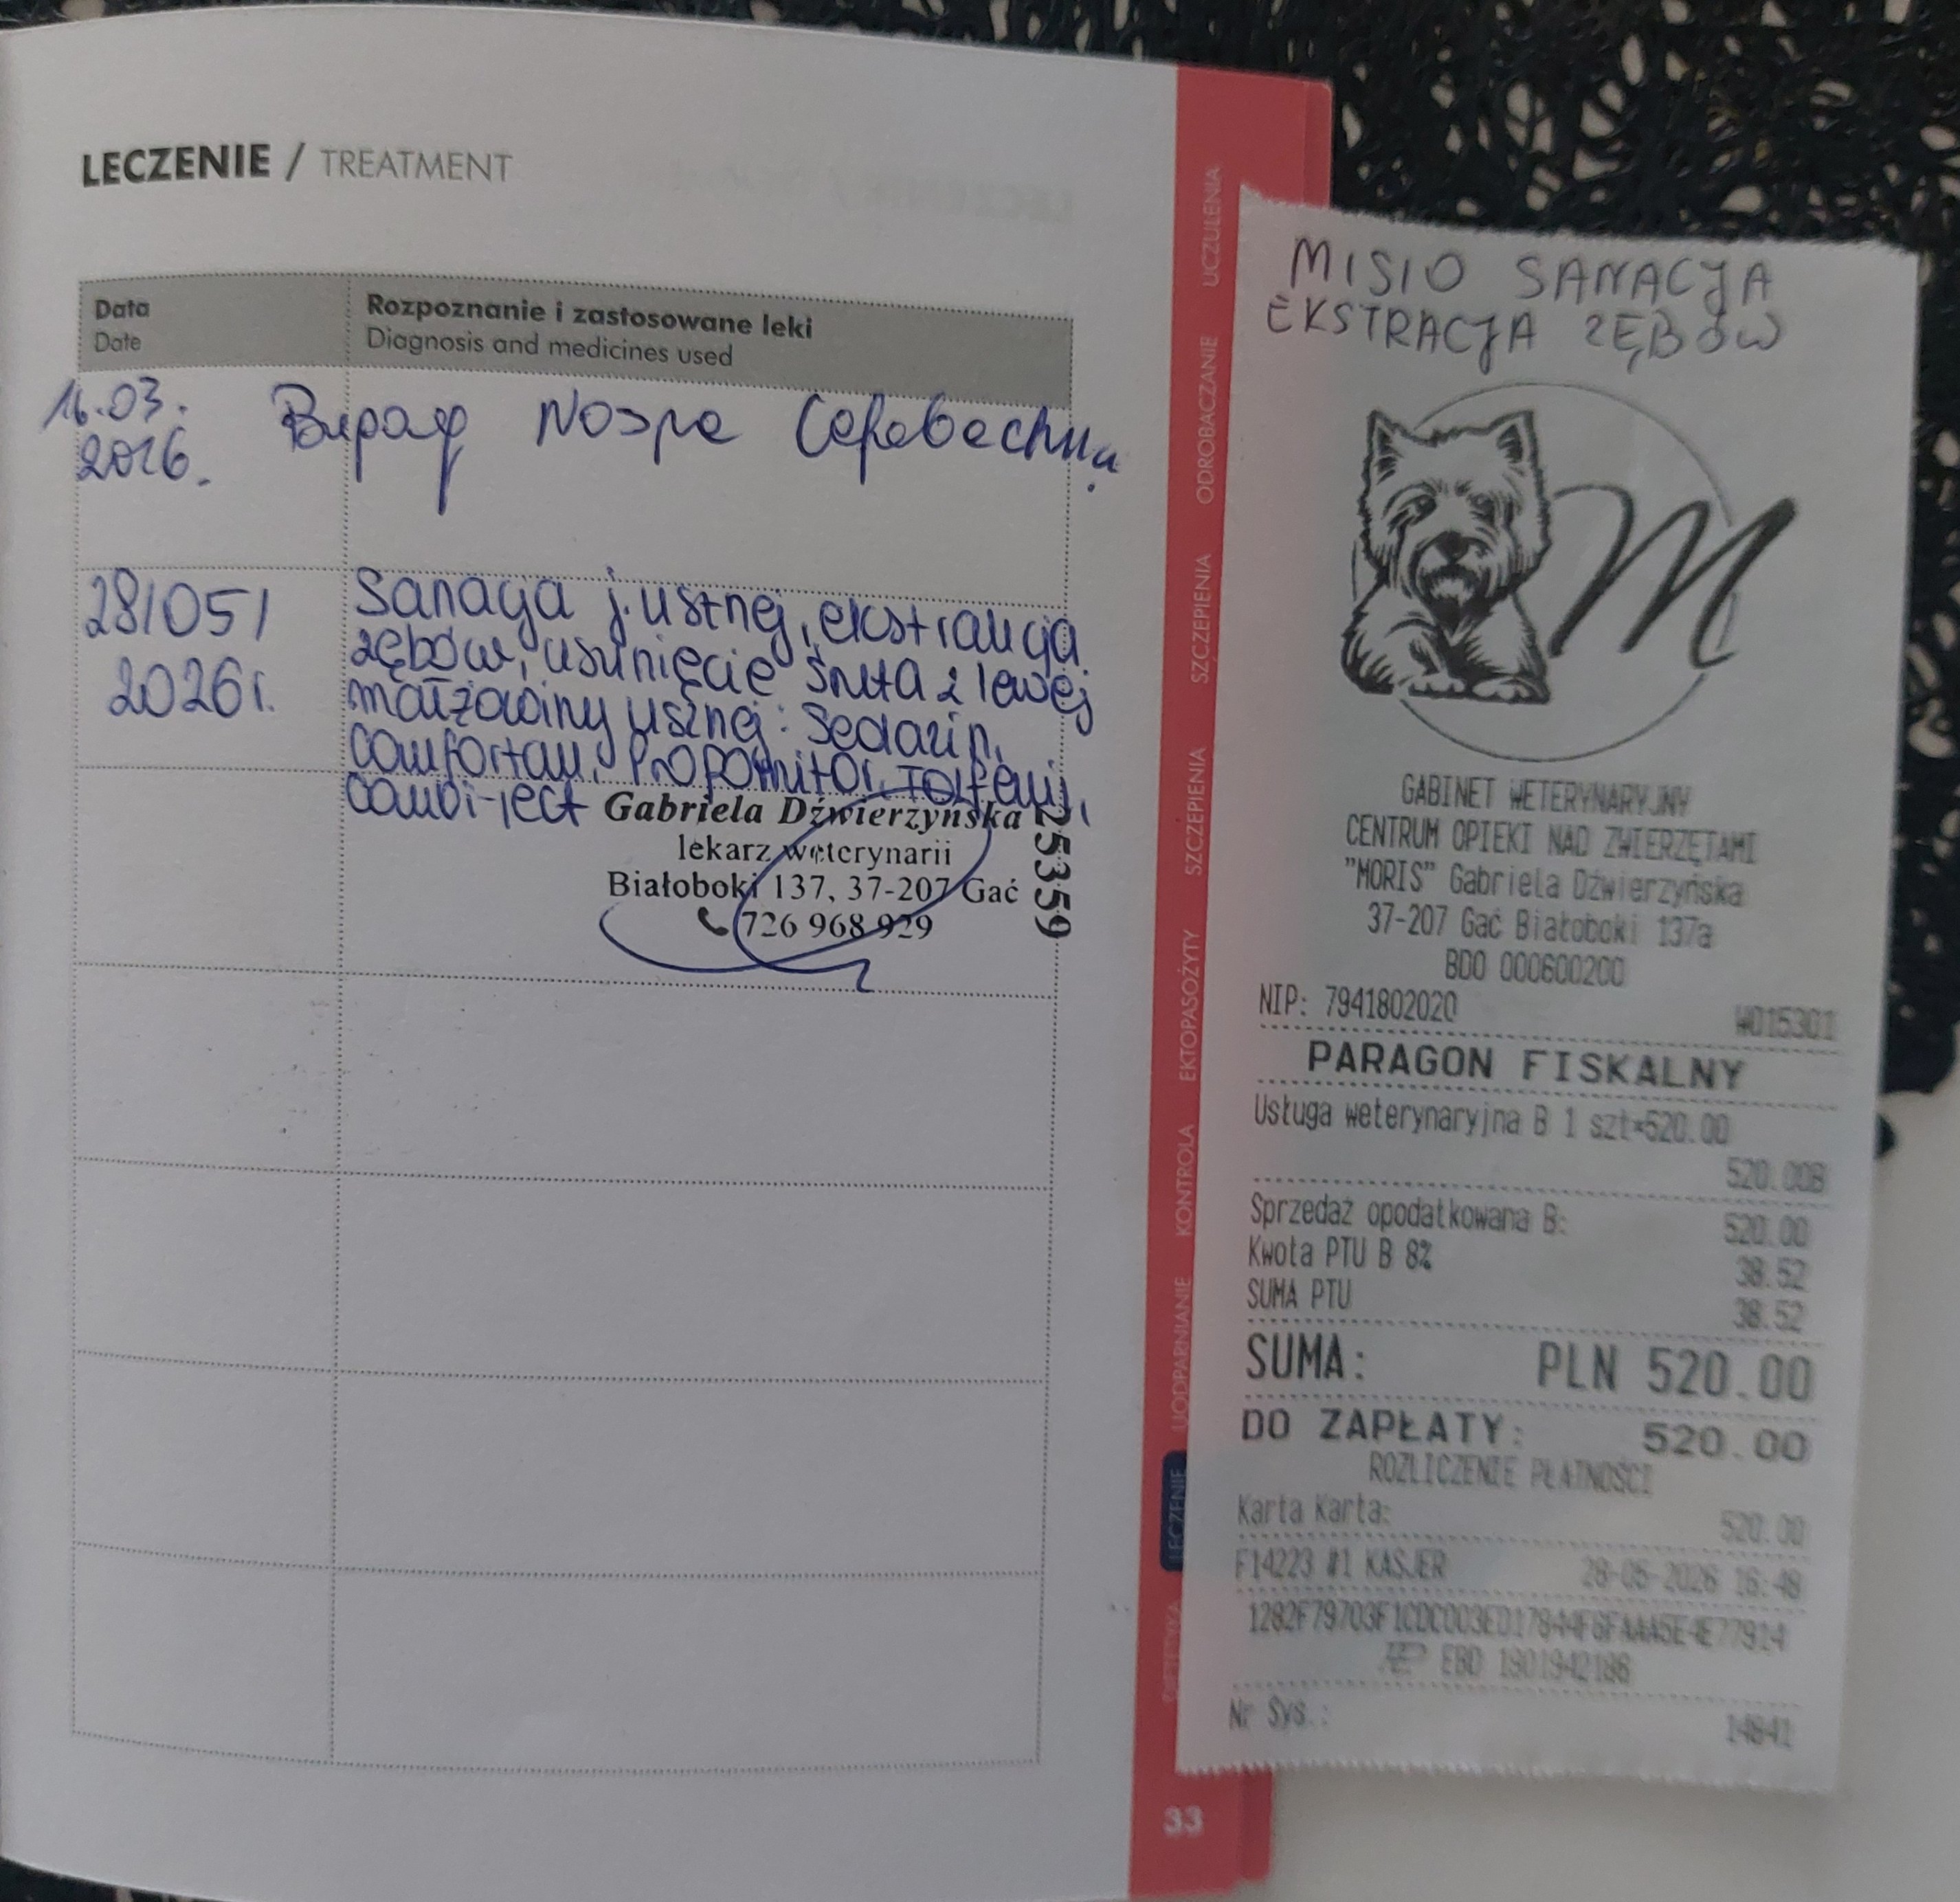 LECZENIE / TREATMENT
Data
Date
Rozpoznanie i zastosowane leki
Diagnosis and medicines used
16.03.
2026.
Nospa
28/05/
2026r.
Sanacja j. ustnej, ekstrakcja
zębów, usunięcie śruta z lewej
małżowiny usznej: Sedazin,
Comfortan, Propomitor, Tolfenij,
Combi-ject
Gabriela Dźwierzyńska
lekarz weterynarii
Białoboki 137, 37-207 Gać
726 968 929
25359
UCZULENIA
ODROBACZANIE
SZCZEPIENIA
SZCZEPIENIA
EKTOPASOŻYTY
KONTROLA
UODPARNIANIE
LECZENIE
33
MISIO SANACJA
EKSTRACJA ZĘBÓW
M
GABINET WETERYNARYJNY
CENTRUM OPIEKI NAD ZWIERZĘTAMI
"MORIS" Gabriela Dźwierzyńska
37-207 Gać Białoboki 137a
BDO 000600200
NIP: 7941802020
W015301
PARAGON FISKALNY
Usługa weterynaryjna B 1 szt×520.00
520.00B
Sprzedaż opodatkowana B: 520.00
Kwota PTU B 8% 38.52
SUMA PTU 38.52
SUMA: PLN 520.00
DO ZAPŁATY: 520.00
ROZLICZENIE PŁATNOŚCI
Karta Karta: 520.00
F14223 #1 KASJER 28-05-2026 16:48
EBD 1901942186
Nr Sys.: 14841